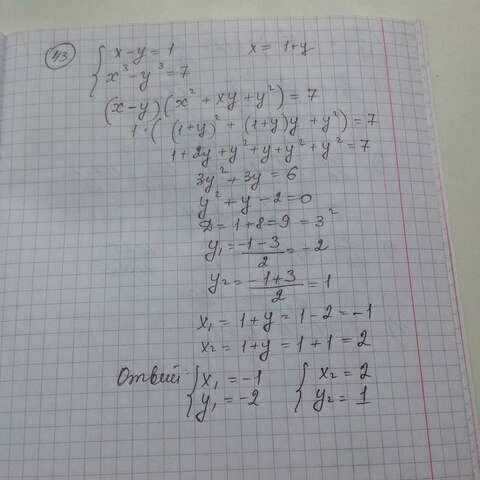 43 { x - y = 1 x = 1+y
x³ - y³ = 7
(x-y)(x² + xy + y²) = 7
1·((1+y)² + (1+y)y + y²) = 7
1 + 2y + y² + y + y² + y² = 7
3y² + 3y = 6
y² + y - 2 = 0
D = 1+8 = 9 = 3²
y₁ = (-1-3)/2 = -2
y₂ = (-1+3)/2 = 1
x₁ = 1+y = 1-2 = -1
x₂ = 1+y = 1+1 = 2
Ответ { x₁ = -1 { x₂ = 2
y₁ = -2 y₂ = 1